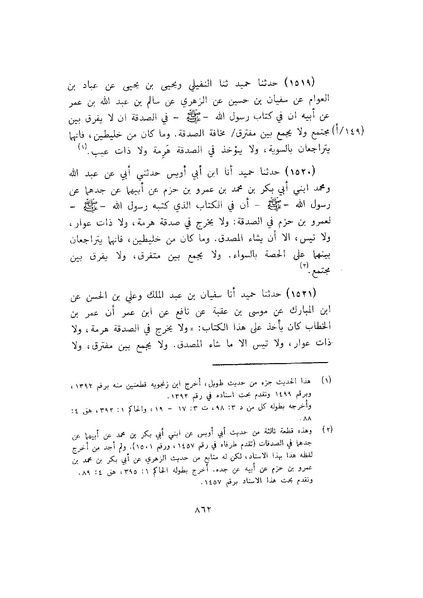 (١٥١٩) حدثنا حميد ثنا النفيلي ويحيى بن يحيى عن عباد بن
العوام عن سفيان بن حسين عن الزهري عن سالم بن عبد الله بن عمر
عن أبيه ان في كتاب رسول الله - ﷺ - في الصدقة ان لا يفرق بين
(١٤٩/أ) مجتمع ولا يجمع بين مفترق/ مخافة الصدقة. وما كان من خليطين، فانهما
يتراجعان بالسوية، ولا يؤخذ في الصدقة هَرِمة ولا ذات عيب.(١)
(١٥٢٠) حدثنا حميد أنا ابن أبي أويس حدثني أبي عن عبد الله
ومحمد ابني أبي بكر بن محمد بن عمرو بن حزم عن أبيهما عن جدهما عن
رسول الله - ﷺ - أن في الكتاب الذي كتبه رسول الله - ﷺ -
لعمرو بن حزم في الصدقة: ولا يخرج في صدقة هرمة، ولا ذات عوار،
ولا تيس، الا أن يشاء المصدق. وما كان من خليطين، فانهما يتراجعان
بينهما على الحصة بالسواء. ولا يجمع بين متفرق، ولا يفرق بين
مجتمع.(٢)
(١٥٢١) حدثنا حميد أنا سفيان بن عبد الملك وعلي بن الحسن عن
ابن المبارك عن موسى بن عقبة عن نافع عن ابن عمر أن عمر بن
الخطاب كان يأخذ على هذا الكتاب: «ولا يخرج في الصدقة هرمة، ولا
ذات عوار، ولا تيس الا ما شاء المصدق. ولا يجمع بين مفترق، ولا
(١) هذا الحديث جزء من حديث طويل، أخرج ابن زنجويه قطعتين منه برقم ١٣٩٢،
وبرقم ١٤٩٩ وتقدم بحث اسناده في رقم ١٣٩٢.
وأخرجه بطوله كل من د ٣: ٩٨، ت ٣: ١٧ - ١٩، والحاكم ١: ٣٩٢، هق ٤:
٨٨.
(٢) وهذه قطعة ثالثة من حديث أبي أويس عن ابني أبي بكر بن محمد عن أبيهما عن
جدهما في الصدقات (تقدم طرفاه في رقم ١٤٥٧، ورقم ١٥٠١). ولم أجد من أخرج
لفظه هذا بهذا الاسناد، لكن له متابع من حديث الزهري عن أبي بكر بن محمد بن
عمرو بن حزم عن أبيه عن جده. أخرج بطوله الحاكم ١: ٣٩٥، هق ٤: ٨٩.
وتقدم بحث هذا الاسناد برقم ١٤٥٧.
٨٦٢